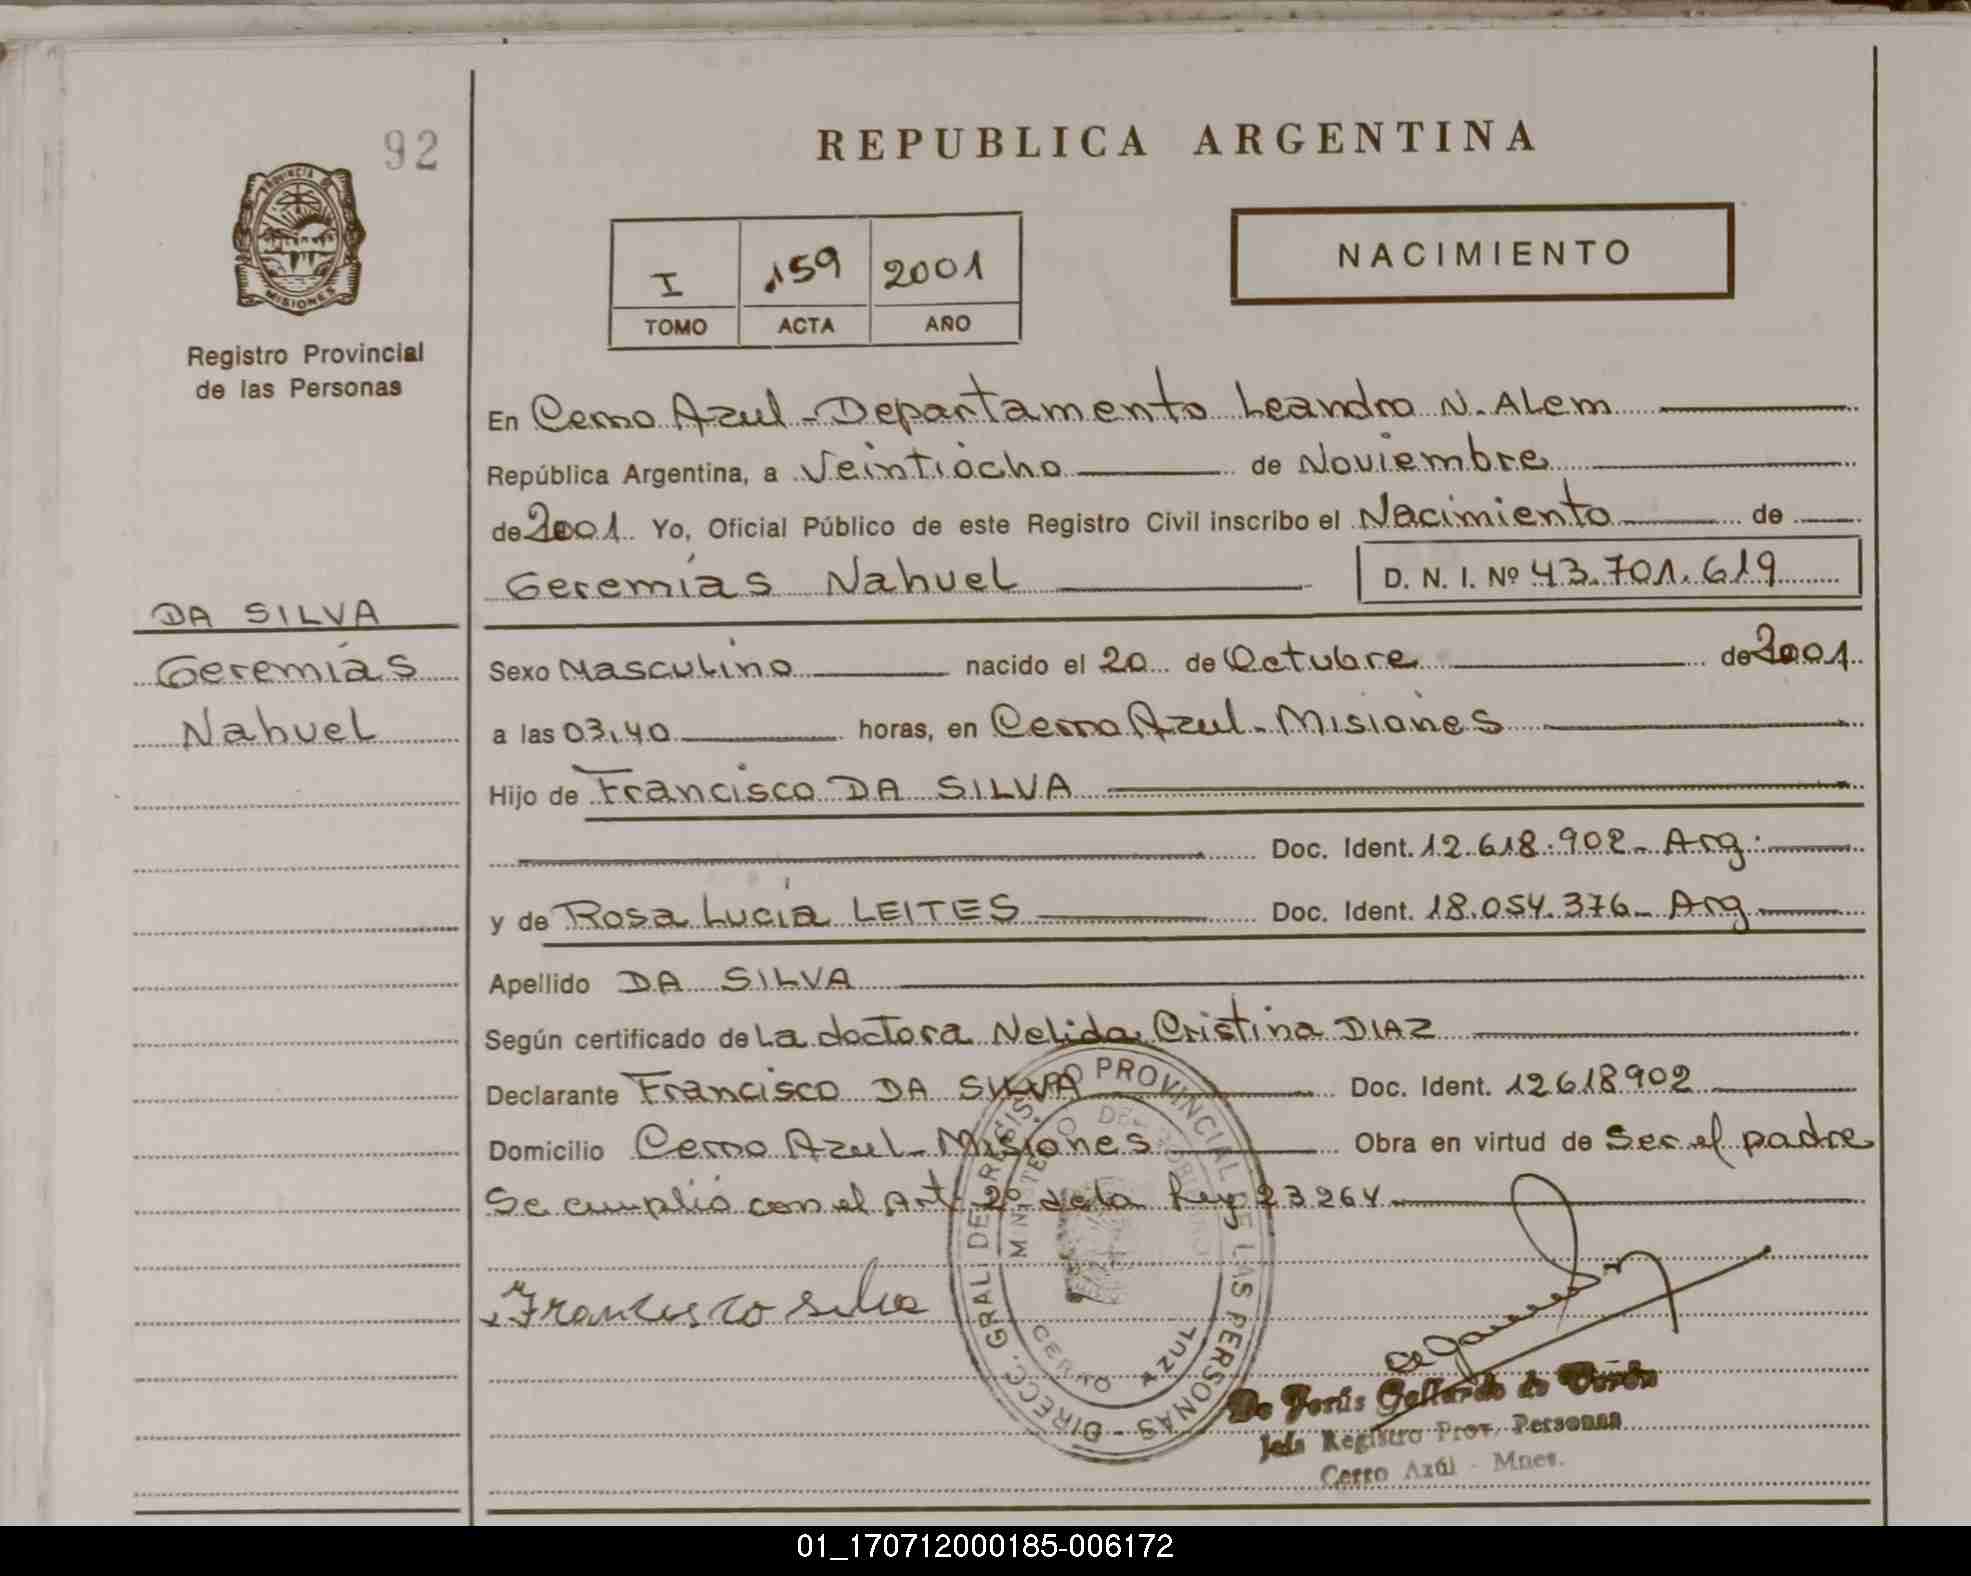 92
PROVINCIA DE
MISIONES
Registro Provincial
de las Personas
DA SILVA
Geremías
Nahuel
REPUBLICA ARGENTINA
I 159 2001
TOMO ACTA AÑO
NACIMIENTO
En Cerro Azul - Departamento Leandro N. Alem
República Argentina, a Veintiocho de Noviembre
de 2001. Yo, Oficial Público de este Registro Civil inscribo el Nacimiento de
Geremías Nahuel D. N. I. Nº 43.701.619
Sexo Masculino nacido el 20 de Octubre de 2001.
a las 03,40 horas, en Cerro Azul - Misiones
Hijo de Francisco DA SILVA
Doc. Ident. 12.618.902 - Arg.
y de Rosa Lucía LEITES Doc. Ident. 18.054.376 - Arg
Apellido DA SILVA
Según certificado de La doctora Nelida Cristina DIAZ
Declarante Francisco DA SILVA Doc. Ident. 12618902
Domicilio Cerro Azul - Misiones Obra en virtud de Ser el padre
Se cumplió con el Art. 2º de la Ley 23264
Francisco Silva
DIRECC. GRAL DE REGISTRO PROVINCIAL DE LAS PERSONAS
MINISTERIO DE GOBIERNO
CERRO AZUL
De Jesús Gallardo de
Jefa Registro Prov. Personas
Cerro Azúl - Mnes.
01_170712000185-006172